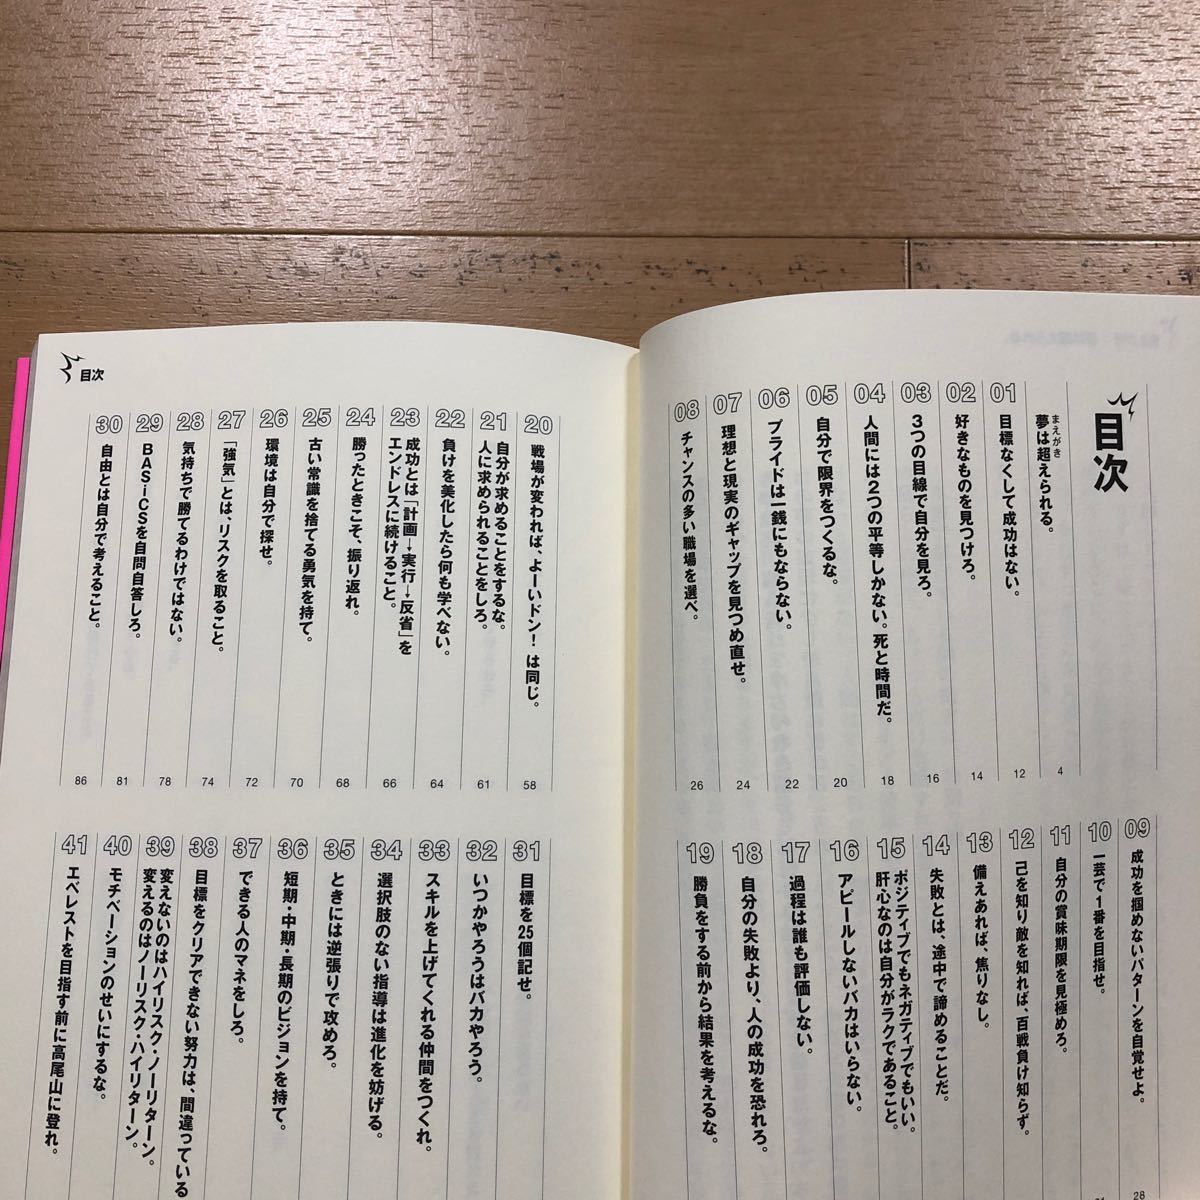 目次
まえがき
夢は超えられる。
4
01
目標なくして成功はない。
12
02
好きなものを見つけろ。
14
03
3つの目線で自分を見ろ。
16
04
人間には2つの平等しかない。死と時間だ。
18
05
自分で限界をつくるな。
20
06
プライドは一銭にもならない。
22
07
理想と現実のギャップを見つめ直せ。
24
08
チャンスの多い職場を選べ。
26
09
成功を掴めないパターンを自覚せよ。
28
10
一芸で1番を目指せ。
11
自分の賞味期限を見極めろ。
12
己を知り敵を知れば、百戦負け知らず。
13
備えあれば、焦りなし。
14
失敗とは、途中で諦めることだ。
15
ポジティブでもネガティブでもいい。
肝心なのは自分がラクであること。
16
アピールしないバカはいらない。
17
過程は誰も評価しない。
18
自分の失敗より、人の成功を恐れろ。
19
勝負をする前から結果を考えるな。
目次
20
戦場が変われば、よーいドン！は同じ。
58
21
自分が求めることをするな。
人に求められることをしろ。
61
22
負けを美化したら何も学べない。
64
23
成功とは「計画→実行→反省」を
エンドレスに続けること。
66
24
勝ったときこそ、振り返れ。
68
25
古い常識を捨てる勇気を持て。
70
26
環境は自分で探せ。
72
27
「強気」とは、リスクを取ること。
74
28
気持ちで勝てるわけではない。
78
29
BASiCSを自問自答しろ。
81
30
自由とは自分で考えること。
86
31
目標を25個記せ。
32
いつかやろうはバカやろう。
33
スキルを上げてくれる仲間をつくれ。
34
選択肢のない指導は進化を妨げる。
35
ときには逆張りで攻めろ。
36
短期・中期・長期のビジョンを持て。
37
できる人のマネをしろ。
38
目標をクリアできない努力は、間違っている
39
変えないのはハイリスク・ノーリターン。
変えるのはノーリスク・ハイリターン。
40
モチベーションのせいにするな。
41
エベレストを目指す前に高尾山に登れ。